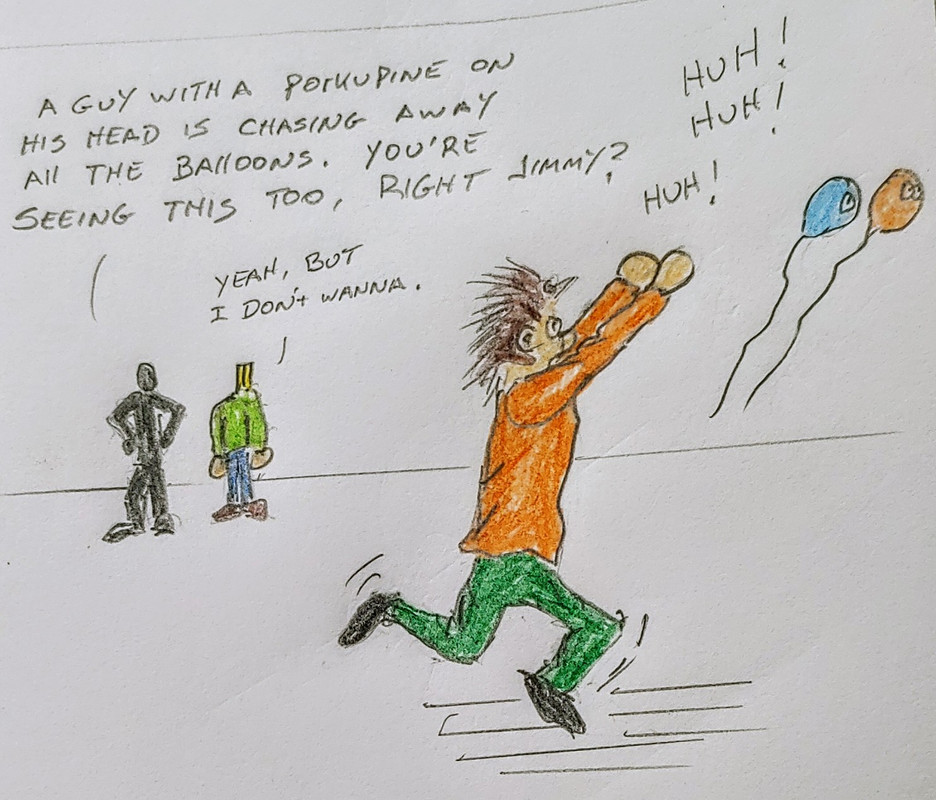 A GUY WITH A PORKUPINE ON
HIS HEAD IS CHASING AWAY
All THE BAllOONS. YOU'RE
SEEING THIS TOO, RIGHT JIMMY?
YEAH, BUT
I DON'T WANNA.
HUH!
HUH!
HUH!